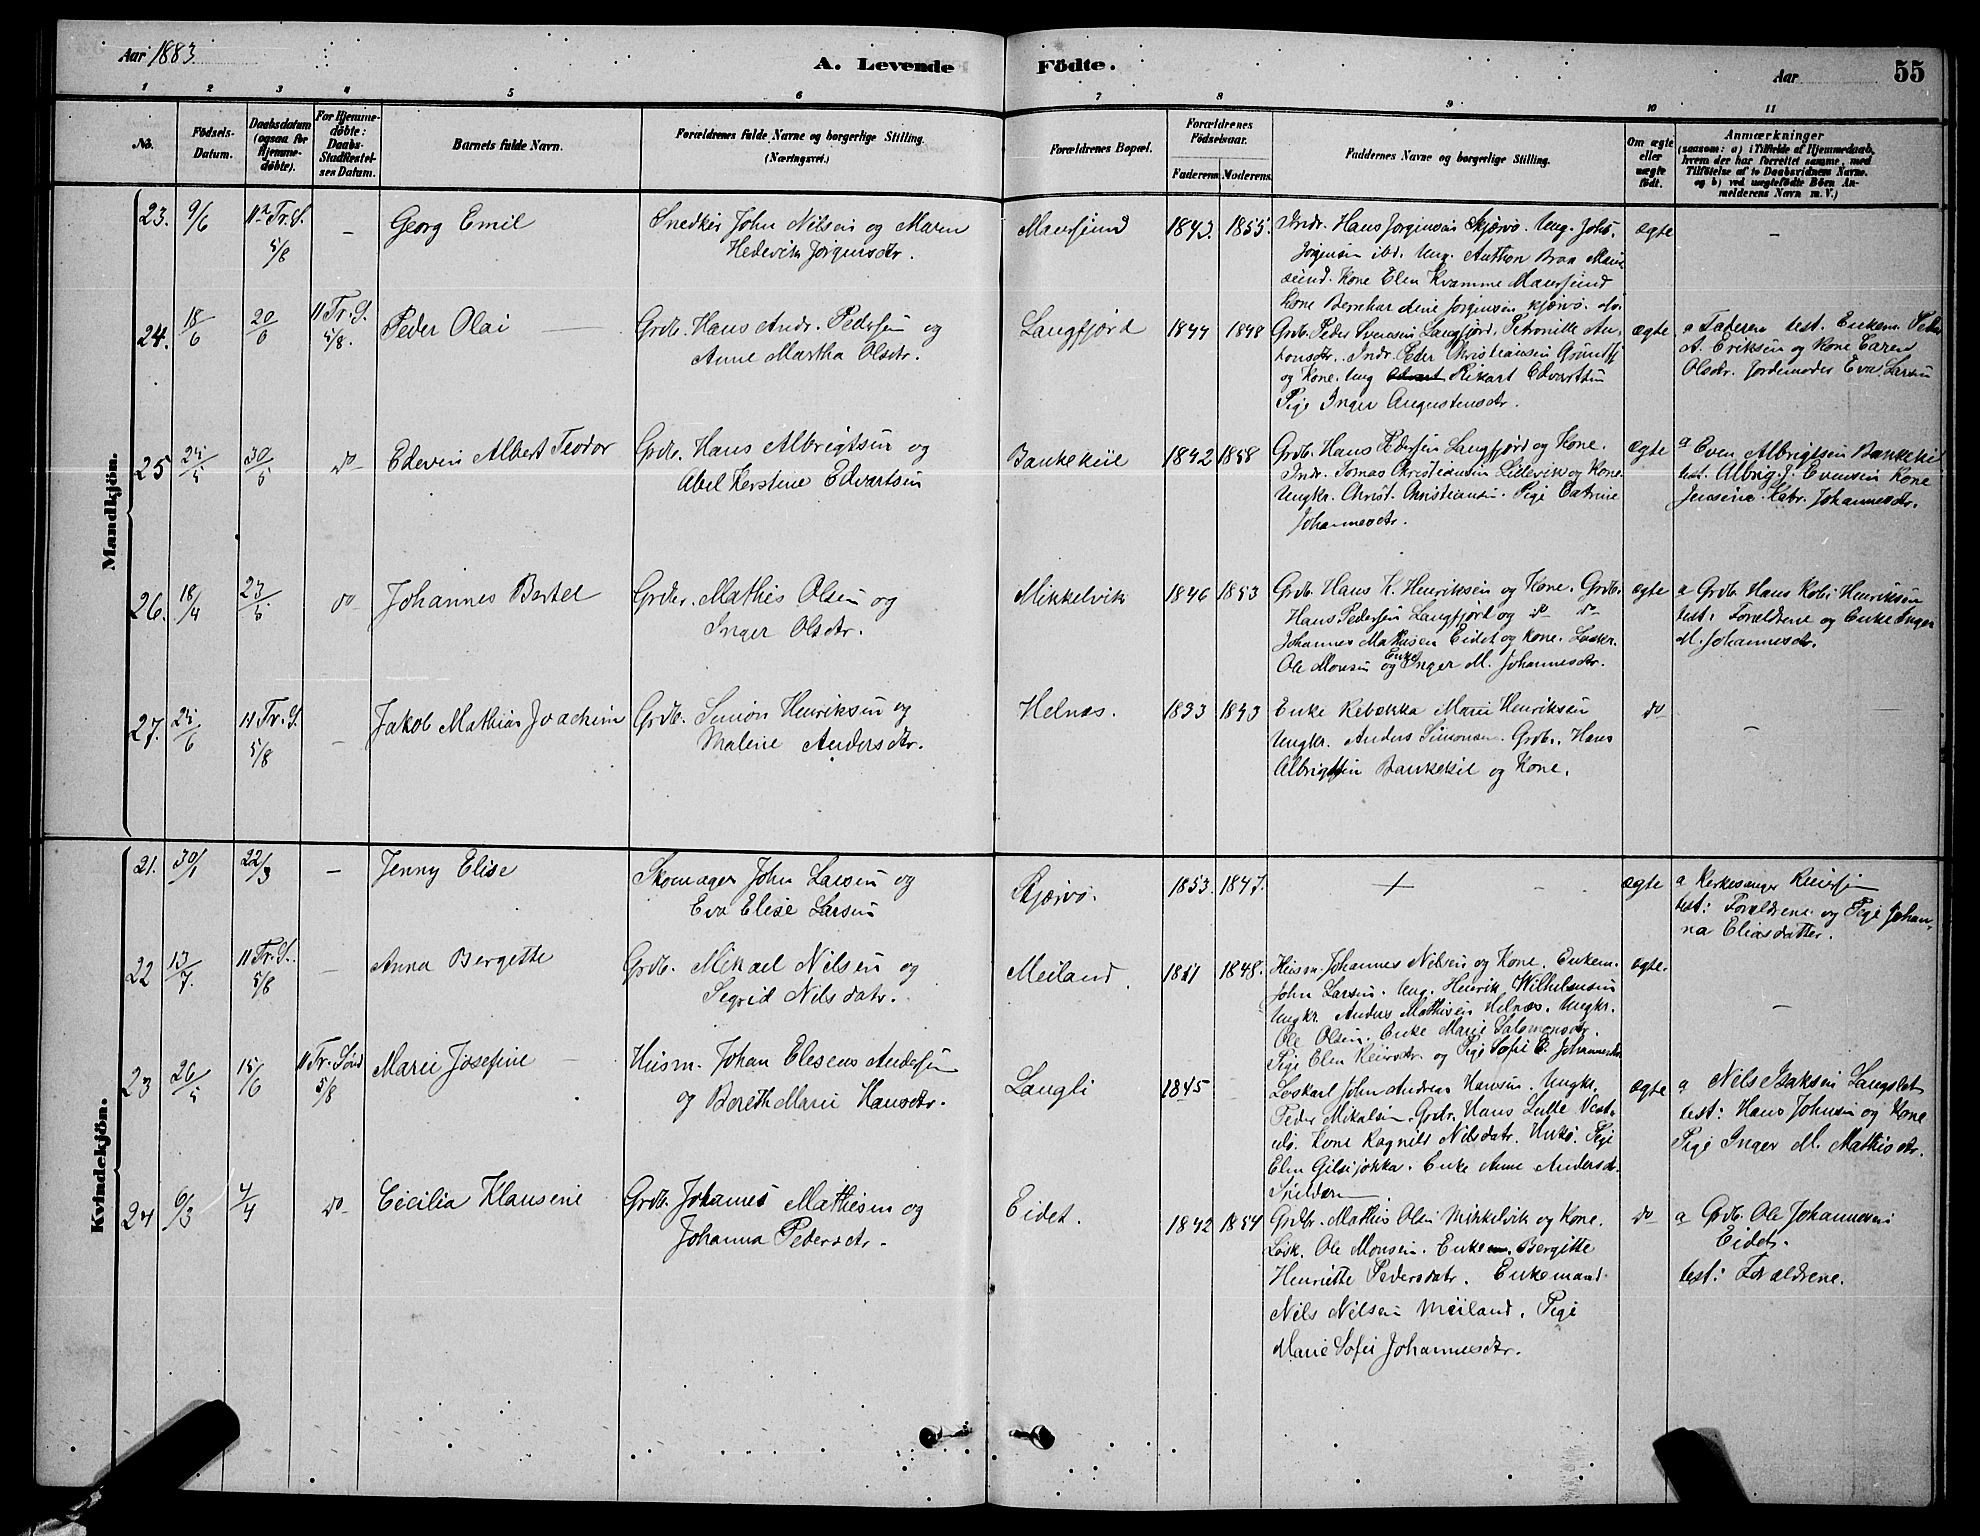 Aar 1883.
A. Levende
Födte.
Aar
55
1
2
3
4
5
6
7
8
9
10
11
No.
Födsels-
Datum.
Daabsdatum
(ogsaa for
Hjemme-
döbte).
For Hjemme-
döbte:
Daabs-
Stadfæstel-
ses Datum.
Barnets fulde Navn.
Forældrenes fulde Navne og borgerlige Stilling.
(Næringsvei.)
Forældrenes Bopæl.
Forældrenes
Födselsaar.
Faderens
Moderens.
Faddernes Navne og borgerlige Stilling.
Om ægte
eller
uægte
födt.
Anmærkninger
(saasom: a) i Tilfælde af Hjemmedaab,
hvem der har forrettet samme, med
Tilföielse af to Daabsvidners Navne.
og b) ved uægtefödte Börn An-
melderens Navn m. V.)
Mandkjön.
23. 9/6 11te Tr. S. 5/8 - Georg Emil
Snedker John Nilsen og Maren
Hedevik Jørgensdtr.
Maursund 1843. 1855.
Indr. Hans Jørginsen Skjærvø. Ung. Johs.
Jørgensen ibd. Ung. Anthon Braa Maur-
sund. Kone Elen Kvamme Maursund
Kone Bernhardine Jørginsen Skjærvø.
ægte -
24. 18/6 20/6 11 Tr. S. 5/8. Peder Olai
Grdb. Hans Andr. Pedersen og
Anne Martha Olsdtr.
Langfjord 1844 1848
Grdb. Peder Svensen Langfjord. Petronille An-
tonsdtr. Indr. Peder Christiansen Grundfj
og Kone. Ung Rikart Edvartsen
Pige Inger Augustinsdtr.
ægte
a Faderen test. Enkem. Peder
A. Eriksen og Kone Caren
Olsdtr. Jordemoder Eva Larsen
25 25/5 30/5 do Edevin Albert Teodor
Grdbr. Hans Albrigtsen og
Abel Kerstine Edvartsen
Bankekiil 1842 1858
Grdb. Hans Pedersen Langfjord og Kone.
Indr. Tornas Christiansen Lillevik og Kone
Ungkr. Christ. Christiansen. Pige Catrine
Johannesdtr.
ægte
a Even Albrigtsen Bankekil
test. Albrigt J. Evensen Kone
Jensine Katr. Johannesdtr.
26. 18/4 23/5 do Johannes Bertel
Grdbr. Mathis Olsen og
Inger Olsdtr.
Mikkelvik 1846 1853
Grdb. Hans K. Henriksen og Kone. Grdb.
Hans Pedersen Langfjord og do do
Johannes Mathisen Eidet og Kone. Løskr.
Ole Monsen og Enke Inger M. Johannesdtr.
ægte
a Grdb. Hans Kobi Henriksen
test. Forældrene og Enke Inger
M. Johannesdtr.
27. 25/6 11 Tr. S. 5/8 - Jakob Mathias Joachim
Grdb. Simon Henriksen og
Malene Andersdtr.
Helnæs. 1833 1843
Enke Rebekka Marie Henriksen
Ungkr. Anders Simonsen. Grdb. Hans
Albrigtsen Bankekil og Kone.
do -
Kvindekjön.
21. 30/1 22/3 - Jenny Elise
Skomager John Larsen og
Eva Elise Larsen
Skjærvø. 1853. 1847. + -
ægte
a Kirkesanger Reiersen
test: Forældrene og Pige Johan-
na Eliasdatter.
22 13/7. 11 Tr. S. 5/8 - Anna Bergette
Grdb. Mikael Nilsen og
Sigrid Nilsdatr.
Meiland. 1841 1848.
Husm. Johannes Nilsen og Kone. Enkem.
John Larsen. Ung. Henrik Wilhelmsen
Ungkr. Anders Mathisen Helnæs. Ungkr.
Ole Olsen. Enke Marie Salomonsdtr.
Pige Elen Reiersdtr. og Pige Sofie E. Johannesdtr
ægte. -
23 26/5 15/6 11 Tr. Sønd 5/8 Marie Josefine
Husm. Johan Elesens Andersen
og Bereth Marie Hansdtr.
Langli 1845 -
Løskarl John Andreas Hansen. Ungkr.
Peder Mikalsen. Grdb. Hans Lulle Vest-
uls. Kone Ragnild Nilsdatr. Pige
Elen Gilsijokka. Enke Anne Andersd.
Spildern
ægte
a Nils Isaksen Langslet
test: Hans Johnsen og Kone
Pige Inger M. Mathisdtr.
24 6/3 4/4 do Cecilia Klausine
Grdb. Johannes Mathisen og
Johanna Pedersdtr.
Eidet. 1842 1854
Grdbr. Mathis Olsen Mikkelvik og Kone.
Løsk. Ole Monsen. Enke Bergitte
Henriette Pedersdatr. Enkemand
Nils Nilsen Meiland. Pige
Marie Sofie Johannesdtr.
do
a Grdb. Ole Johannesen
Eidet.
test: Forældrene.